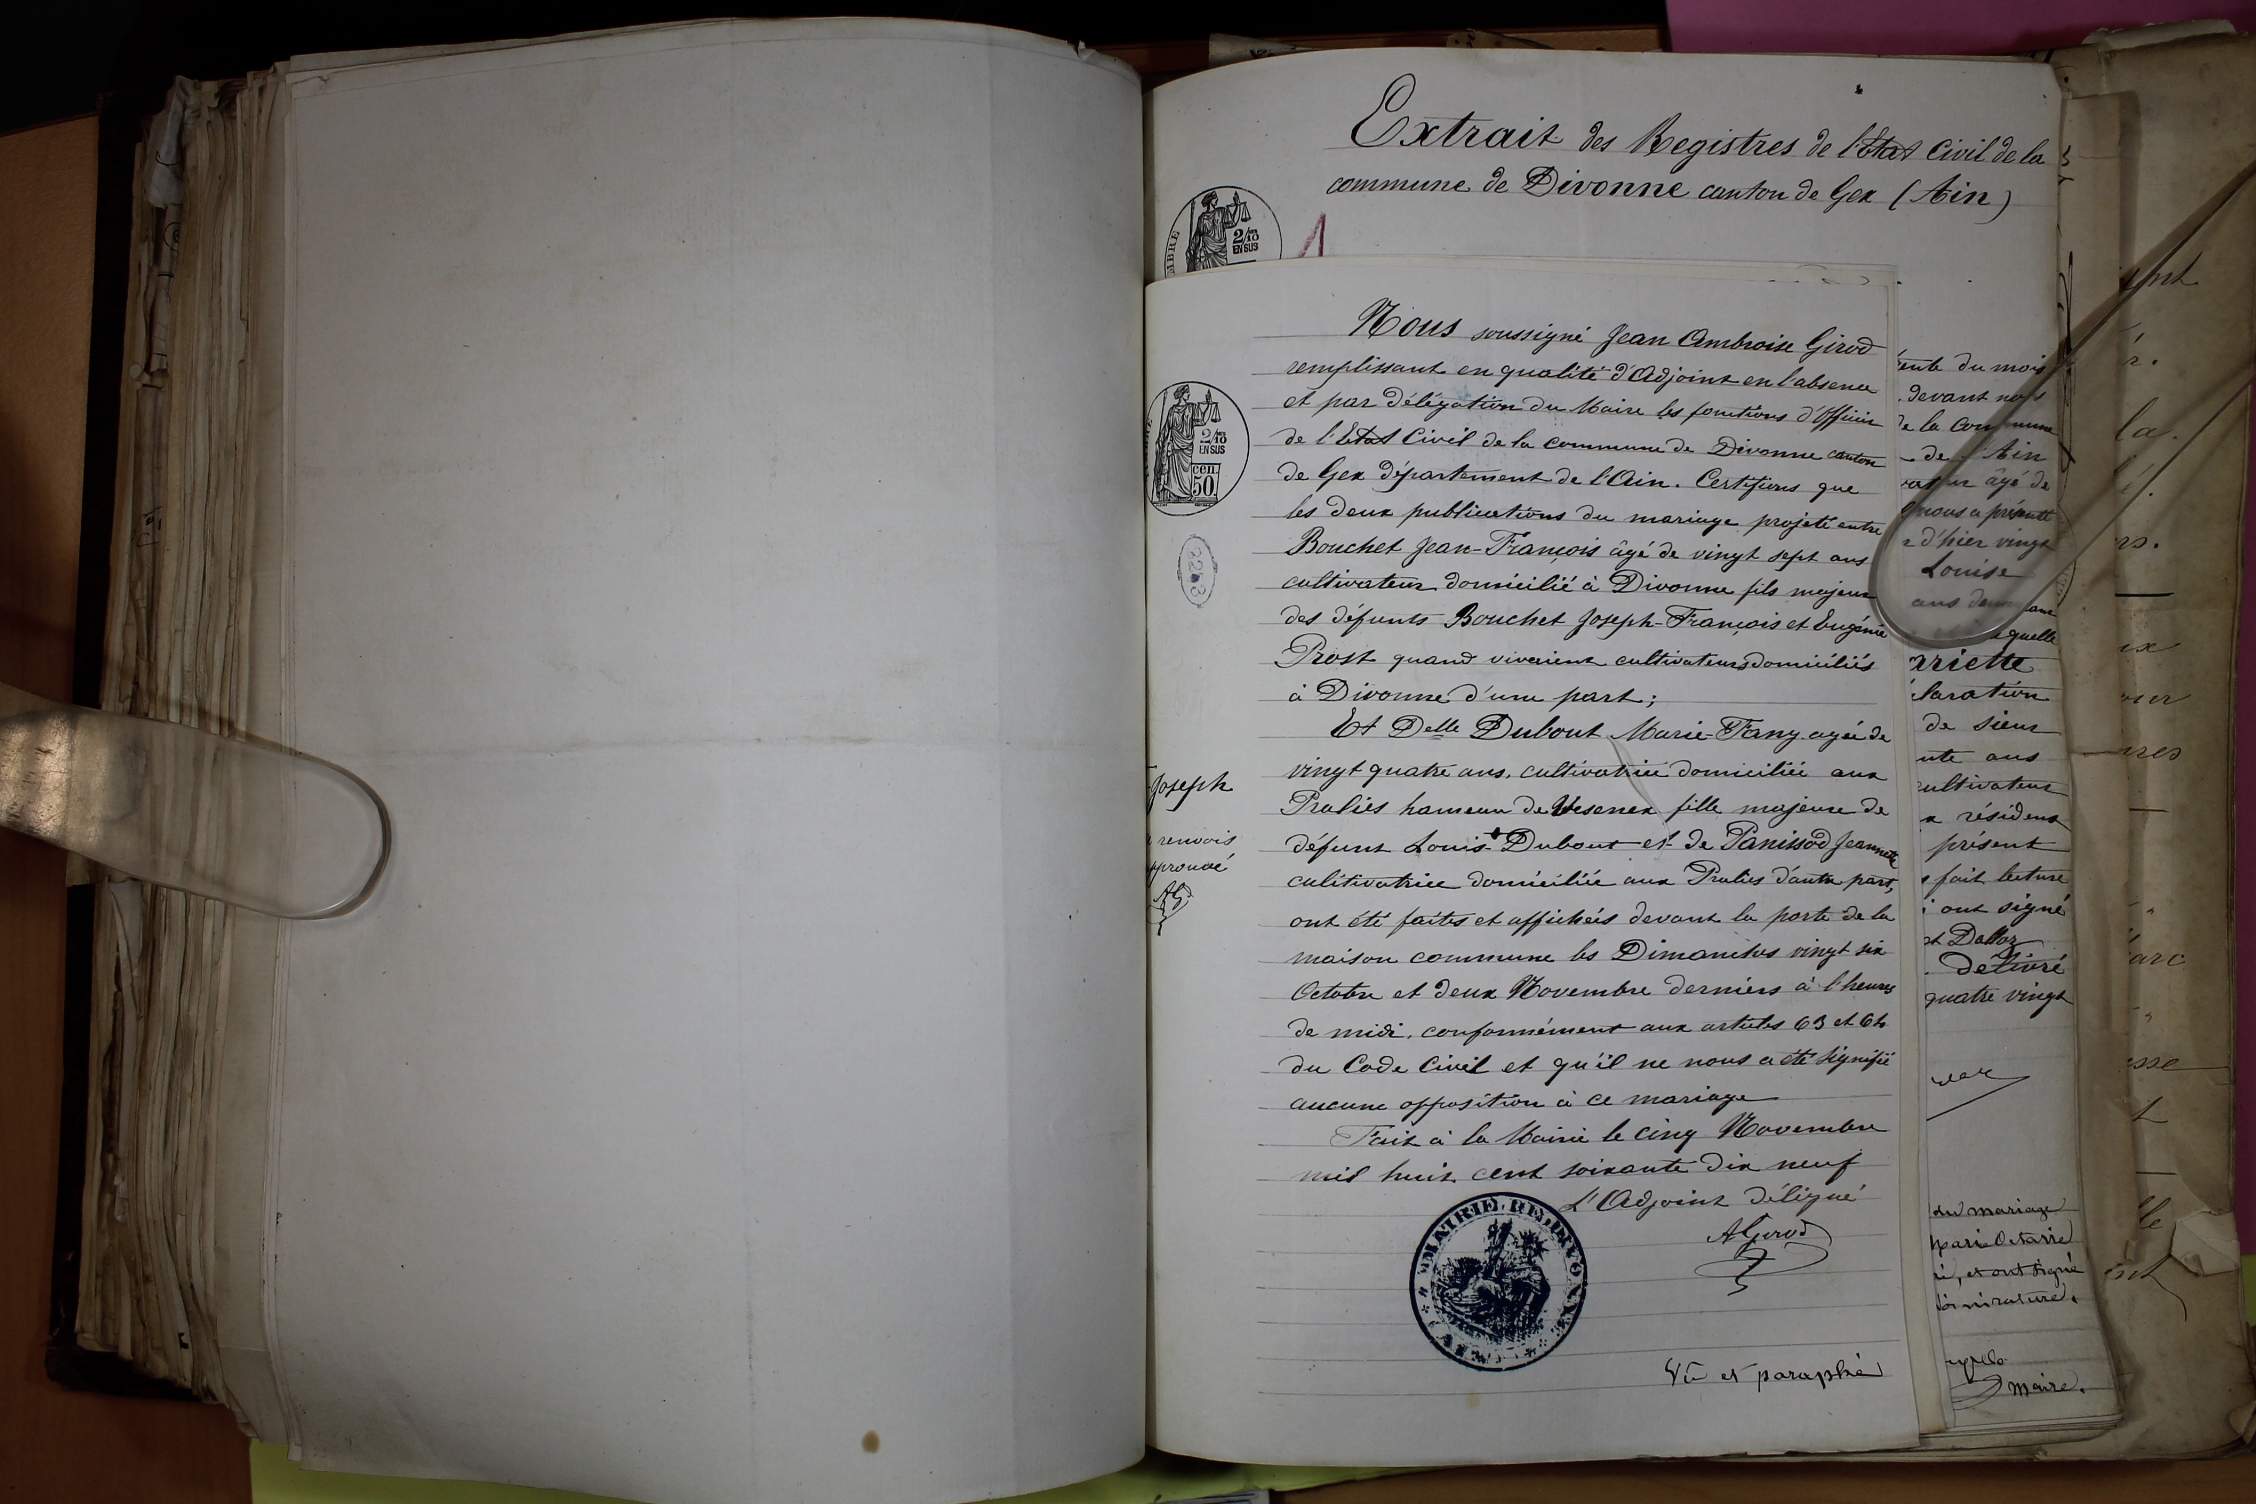 Extrait des Registres de l'Etat Civil de la
commune de Divonne canton de Gex (Ain)
2/10
EN SUS
1
Nous soussigné Jean Ambroise Girod
remplissant en qualité d'Adjoint en l'absence
et par Délégation du Maire les fonctions d'Officier
de l'Etat Civil de la commune de Divonne canton
de Gex département de l'Ain. Certifions que
les deux publications du mariage projeté entre
Bouchet Jean-François âgé de vingt sept ans
cultivateur domicilié à Divonne fils majeur
des défunts Bouchet Joseph-François et Eugénie
Prost quand vivaient cultivateurs domiciliés
à Divonne d'une part;
Et Delle Dubout Marie-Fany agée de
vingt quatre ans, cultivatrice domiciliée aux
Pralies hameau de Vesenex fille majeure de
défunt Louis Dubout et de Panissod Jeannette
cultivatrice domiciliée aux Pralies d'autre part,
ont été faites et affichées devant la porte de la
maison commune les Dimanches vingt six
Octobre et deux Novembre derniers à l'heures
de midi, conformément aux articles 63 et 64
du Code Civil et qu'il ne nous a été signifié
aucune opposition à ce mariage
Fait à la Mairie le cinq Novembre
mil huit cent soixante dix neuf
L'Adjoint délégué
AGirod
Vu et paraphé
2/10
EN SUS
cen.
50.
2243
Joseph
renvois
approuvé
AG
MAIRIE DE DIVONNE
du mois
devant nous
de la commune
de l'Ain
âgé de
nous a présenté
d'hier vingt
Louise
ans
laquelle
rriette
claration
de sieur
ans
cultivateur
résidena
présent
fait lecture
ont signé
et Dalloz
Delivré
quatre vingt
du mariage
Marie Octavie
, et ont signé
maire.